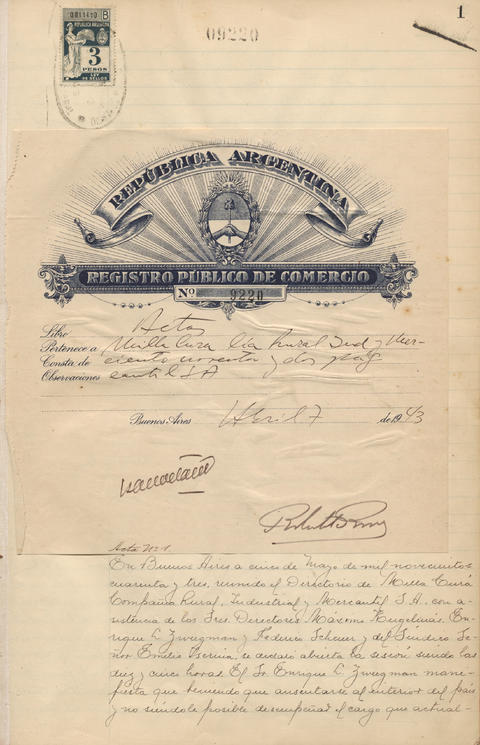 1
09220
B
REPUBLICA ARGENTINA
3
PESOS
LEY
DE SELLOS
REPÚBLICA ARGENTINA
REGISTRO PÚBLICO DE COMERCIO
Nº 9220
Libro Actas
Pertenece a Milla Cura Cia Rural Ind y Mer-
Consta de ciento noventa y dos pág
Observaciones cantil SA
Buenos Aires Abril 7 de 1943
Acta Nº 1.
En Buenos Aires a cinco de Mayo de mil novecientos
cuarenta y tres, reunido el Directorio de Milla Curá
Compañia Rural, Industrial y Mercantil S.A. con a-
sistencia de los Sres. Directores Máximo Engelmás, En-
rique L. Zwegman y Federico Scheuer y del Síndico Se-
ñor Emilio se declaró abierta la sesión siendo las
diez y cinco horas. El Sr. Enrique L. Zwegman mani-
fiesta que teniendo que ausentarse al interior del país
y no siéndole posible desempeñar el cargo que actual-